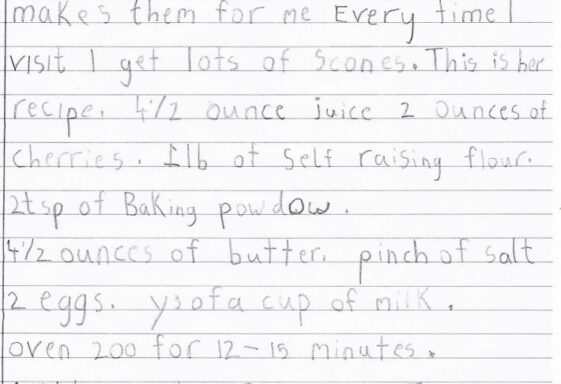 makes them for me Every time I
visit I get lots of scones. This is her
recipe. 4 1/2 ounce juice 2 ounces of
cherries. 1lb of self raising flour.
2tsp of Baking powdow.
4 1/2 ounces of butter. pinch of salt
2 eggs. y3 of a cup of milk.
oven 200 for 12-15 minutes.